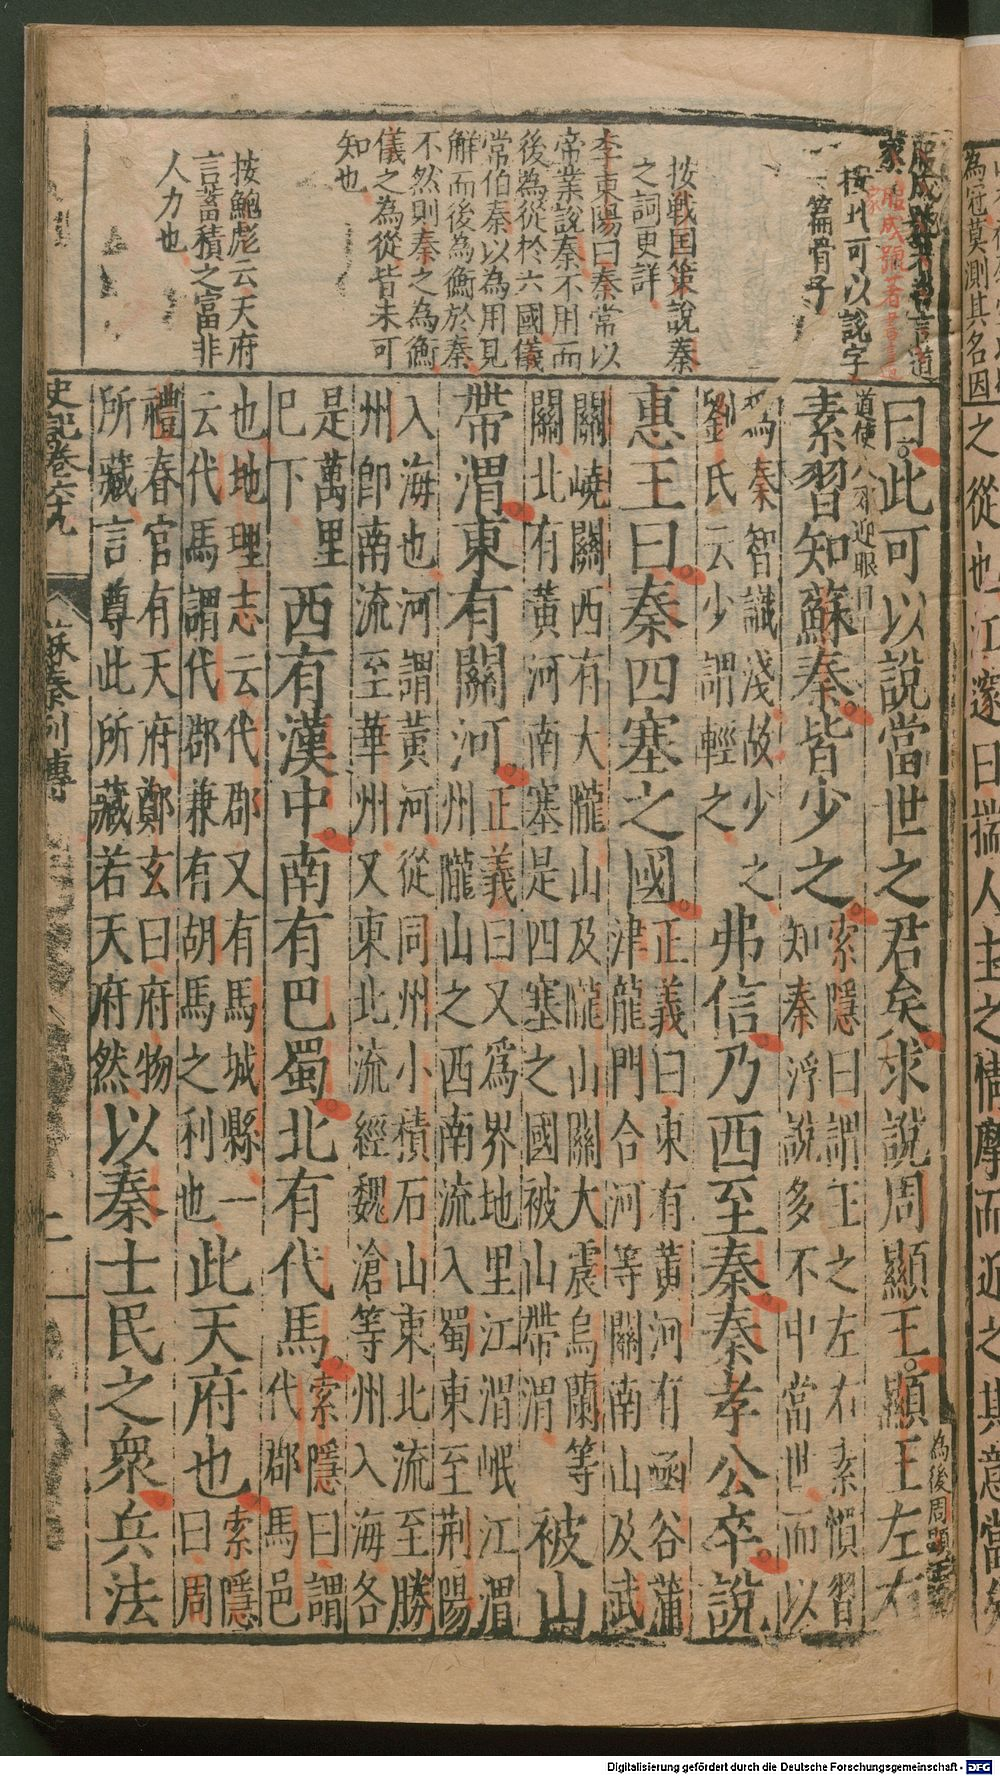 為冠莫測其名因
之從也江邃曰揣人主之情摩而近之其意當矣
按此可以說字
一篇骨子
按戰国策說秦
之詞更詳
李東陽曰秦常以
帝業說秦不用而
後為從於六國儀
常伯秦以為用見
解而後為衡於秦
不然則秦之為衡
儀之為從皆未可
知也
按鮑彪云天府
言蓄積之富非
人力也
曰此可以說當世之君矣求說周顯王顯王左右
素習知蘇秦皆少之
索隱曰謂王之左右素慣習
知秦浮說多不中當世而以
為秦智識淺故少之
劉氏云少謂輕之
弗信乃西至秦秦孝公卒說
惠王曰秦四塞之國
正義曰東有黃河有函谷蒲
津龍門合河等關南山及武
關嶢關西有大隴山及隴山關大震烏蘭等
關北有黃河南塞是四塞之國被山帶渭
被山
帶渭東有關河
正義曰又為界地里江渭岷江渭
州隴山之西南流入蜀東至荆陽
入海也河謂黃河從同州小積石山東北流至勝
州即南流至華州又東北流經魏滄等州入海各
是萬里
巳下
西有漢中南有巴蜀北有代馬
索隱曰謂
代郡馬邑
也地理志云代郡又有馬城縣一
云代馬謂代郡兼有胡馬之利也
此天府也
索隱
曰周
禮春官有天府鄭玄曰府物
所藏言尊此所藏若天府然
以秦士民之衆兵法
史記卷六十九
蘇秦列傳
二
Digitalisierung gefördert durch die Deutsche Forschungsgemeinschaft - DFG